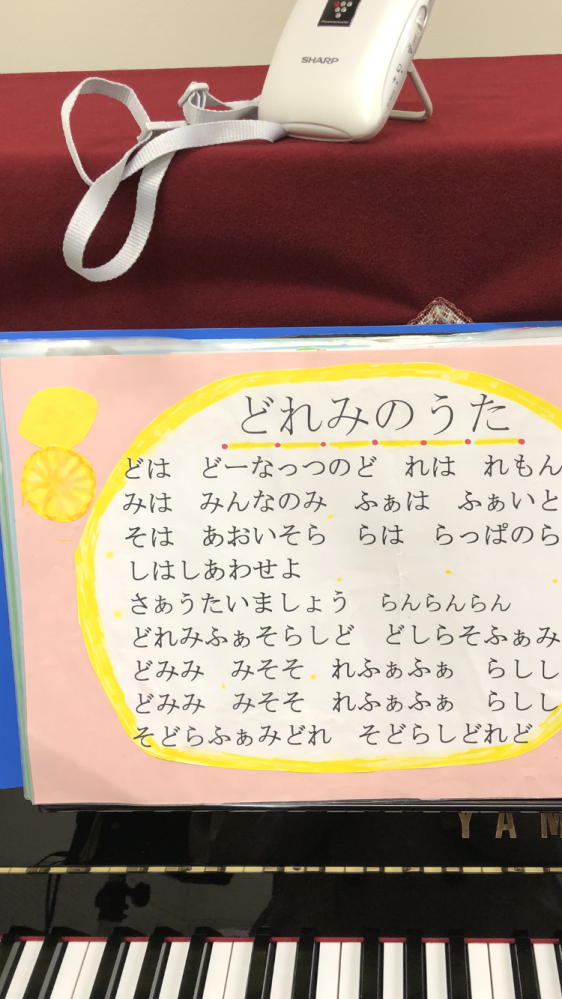 SHARP
どれみのうた
どは　どーなっつのど　れは　れもん
みは　みんなのみ　ふぁは　ふぁいと
そは　あおいそら　らは　らっぱのら
しはしあわせよ
さぁうたいましょう　らんらんらん
どれみふぁそらしど　どしらそふぁみ
どみみ　みそそ　れふぁふぁ　らしし
どみみ　みそそ　れふぁふぁ　らしし
そどらふぁみどれ　そどらしどれど
YAM